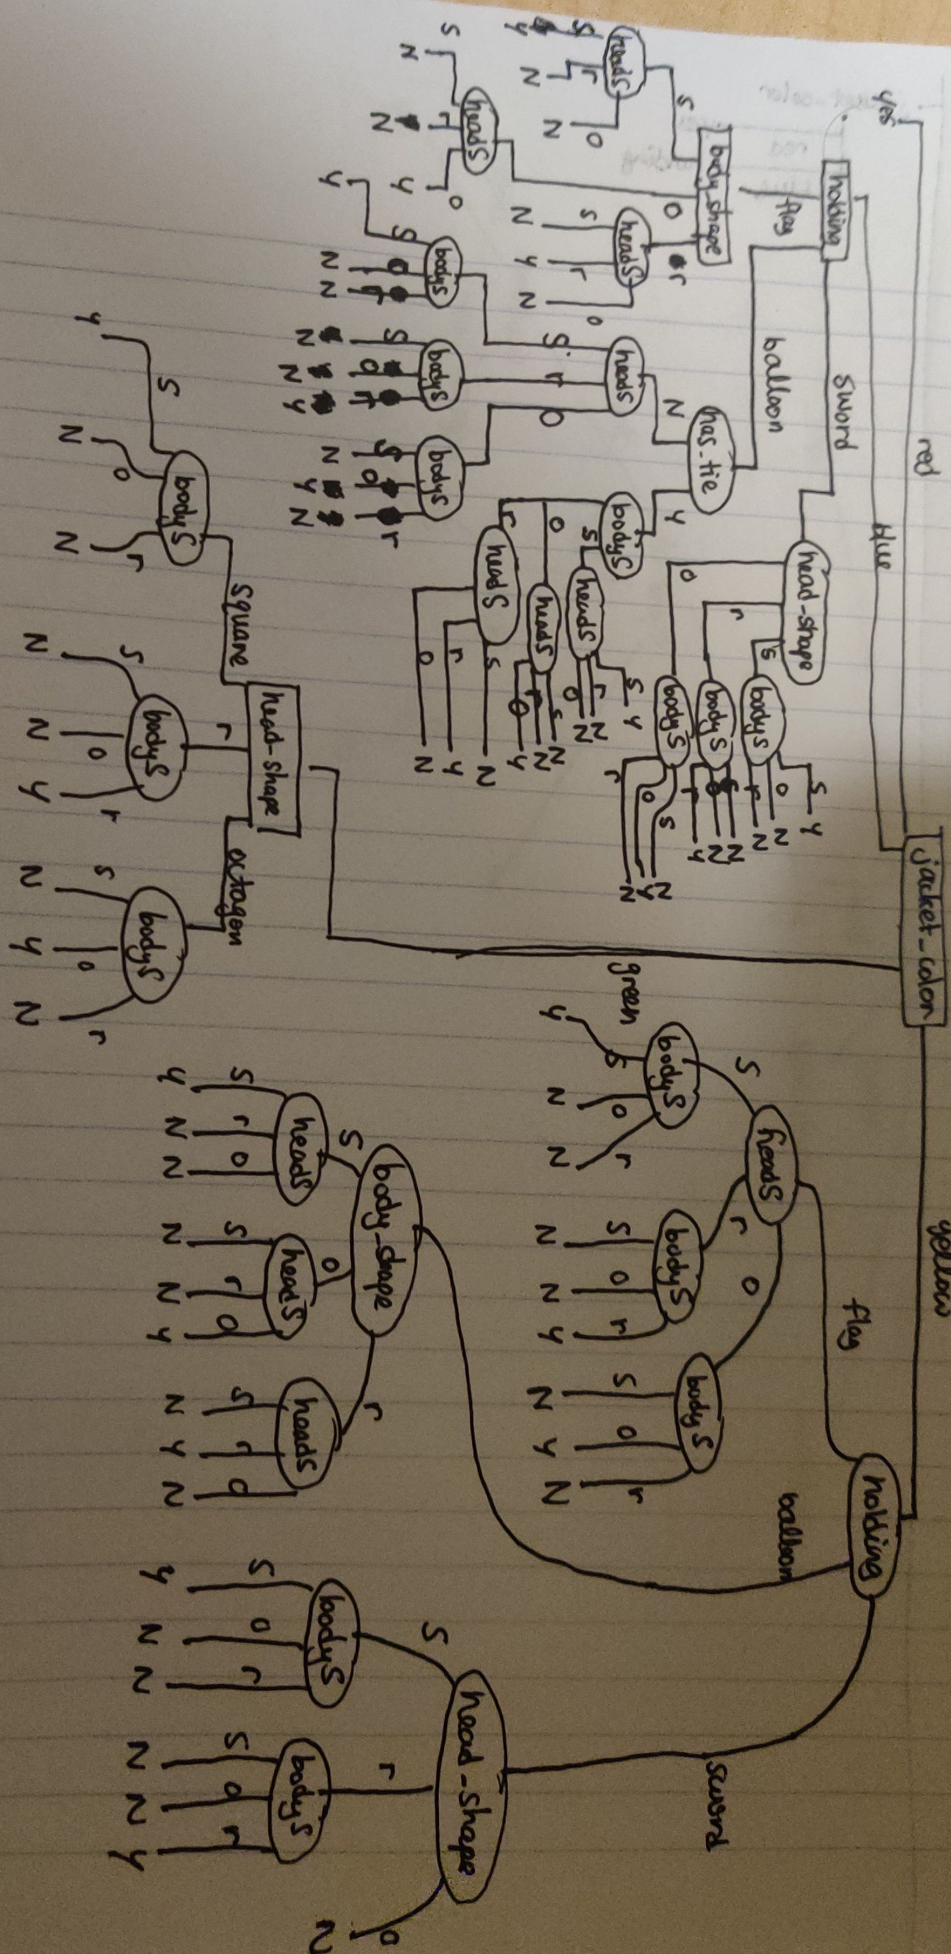 jacket_color
red
blue
green
yellow
yes
holding
flag
balloon
sword
body_shape
s
o
r
headS
s r o
Y N N
headS
s r o
N N Y
headS
s r o
N Y N
has_tie
N
Y
headS
s
r
o
bodyS
s o r
Y N N
bodyS
s o r
N N Y
bodyS
s o r
N Y N
bodyS
s
o
r
headS
s r o
Y N N
headS
s r o
N N Y
headS
s r o
N Y N
head-shape
s
r
o
bodyS
s o r
Y N N
bodyS
s o r
N N Y
bodyS
s o r
N Y N
head-shape
square
r
octagon
bodyS
s o r
Y N N
bodyS
s o r
N N Y
bodyS
s o r
N Y N
holding
flag
balloon
sword
headS
s
r
o
bodyS
s o r
Y N N
bodyS
s o r
N N Y
bodyS
s o r
N Y N
body_shape
s
o
r
headS
s r o
Y N N
headS
s r o
N N Y
headS
s r o
N Y N
head-shape
s
r
o
N
bodyS
s o r
Y N N
bodyS
s o r
N N Y